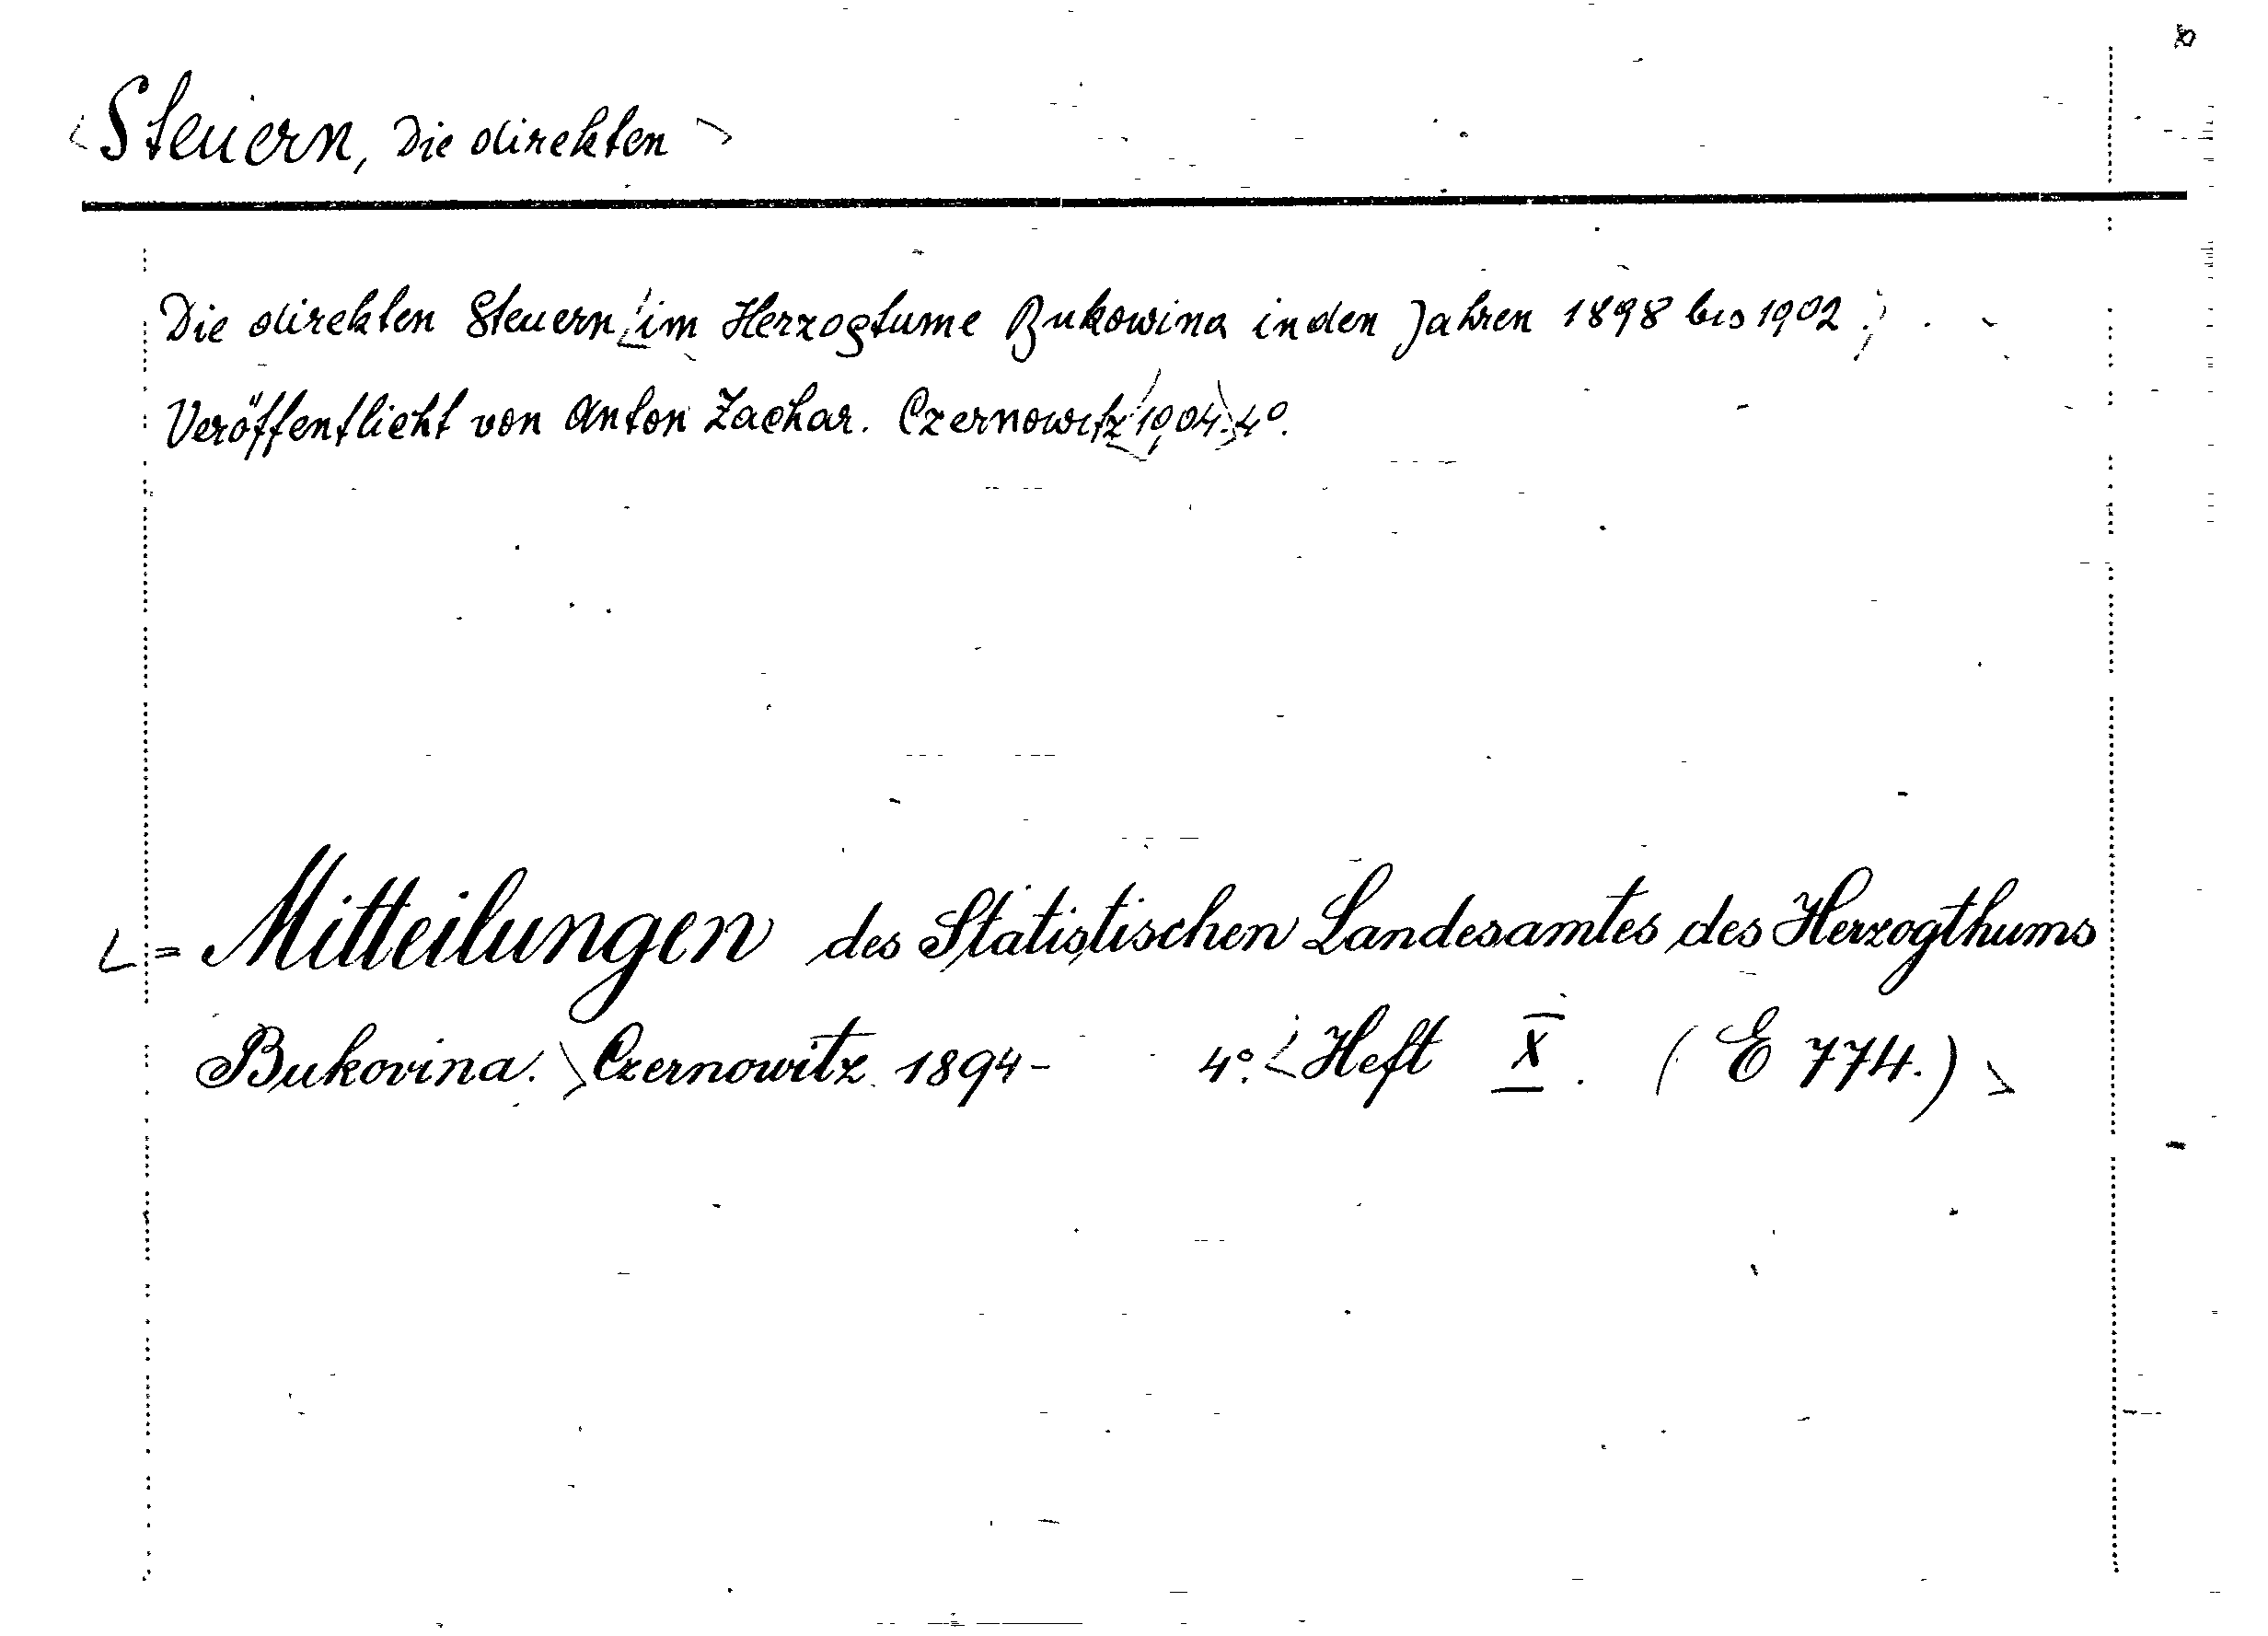 <Steuern, Die direkten>
Die direkten Steuern <im Herzogtume Bukowina in den Jahren 1898 bis 1902.>
Veröffentlicht von Anton Zachar. Czernowitz <1904.> 4º.
<= Mitteilungen des Statistischen Landesamtes des Herzogthums
Bukovina.> Czernowitz 1894- 4º. <Heft X. (E 774.)>